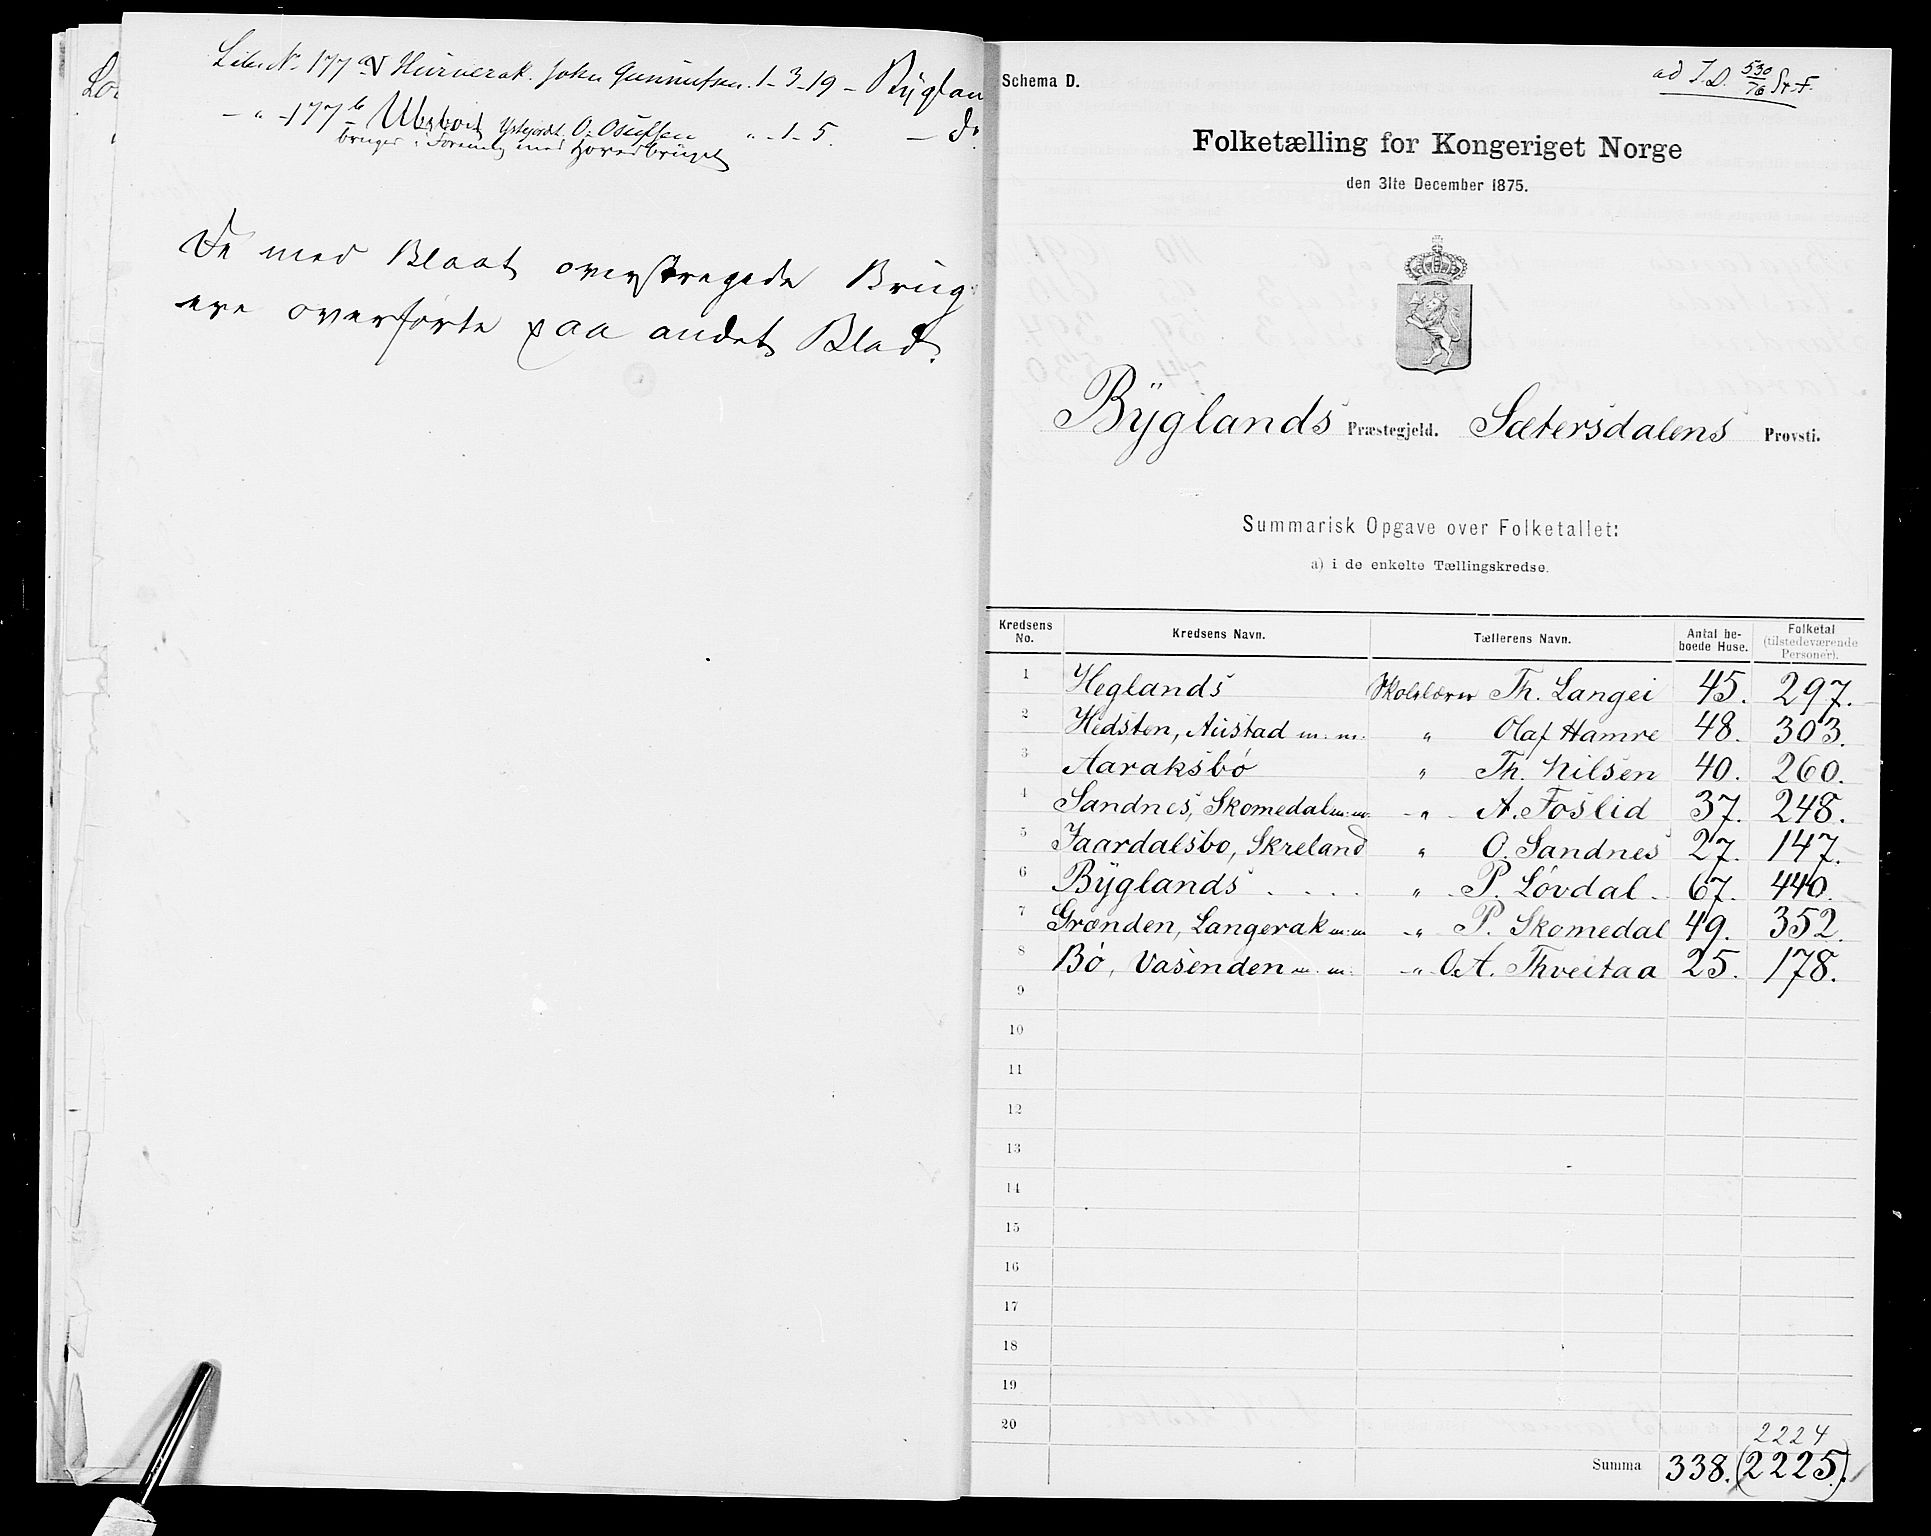 Løb. No. 177 a Hürverak. John Gunnufsen. 1-3-19 - Bÿglan
- " - 177 b Ubsboit Ystejordt. O. Osufsen " - 1 - 5. - do
bruges i Forening med Hovedbrüget
De med Blaat overstregede Brüg-
ere overførte paa andet Blad.
Schema D.
ad J.D. 530/76 St.F.
Folketælling for Kongeriget Norge
den 31te December 1875.
Bÿglands Præstegjeld. Sætersdalens Provsti.
Summarisk Opgave over Folketallet:
a) i de enkelte Tællingskredse.
Kredsens No. Kredsens Navn. Tællerens Navn. Antal beboede Huse. Folketal (tilstedeværende Personer).
1 Heglands Skolelærer Th. Langei 45. 297.
2 Hedsten, Aüstad m. m. " Olaf Hamre 48. 303.
3 Aaraksbø " Th. Nilsen 40. 260.
4 Sandnes, Skomedal m. m. - " - A. Foslid 37. 248.
5 Jaardalsbo, Skreland " O. Sandnes 27. 147.
6 Bÿglands . . . . " P. Løvdal 67. 440.
7 Grænden, Langerak m. m - " P. Skomedal 49. 352.
8 Bø, Vasenden m. m. - " O. A. Thveitaa 25. 178.
9
10
11
12
13
14
15
16
17
18
19
20
2224
Summa 338. (2225.)